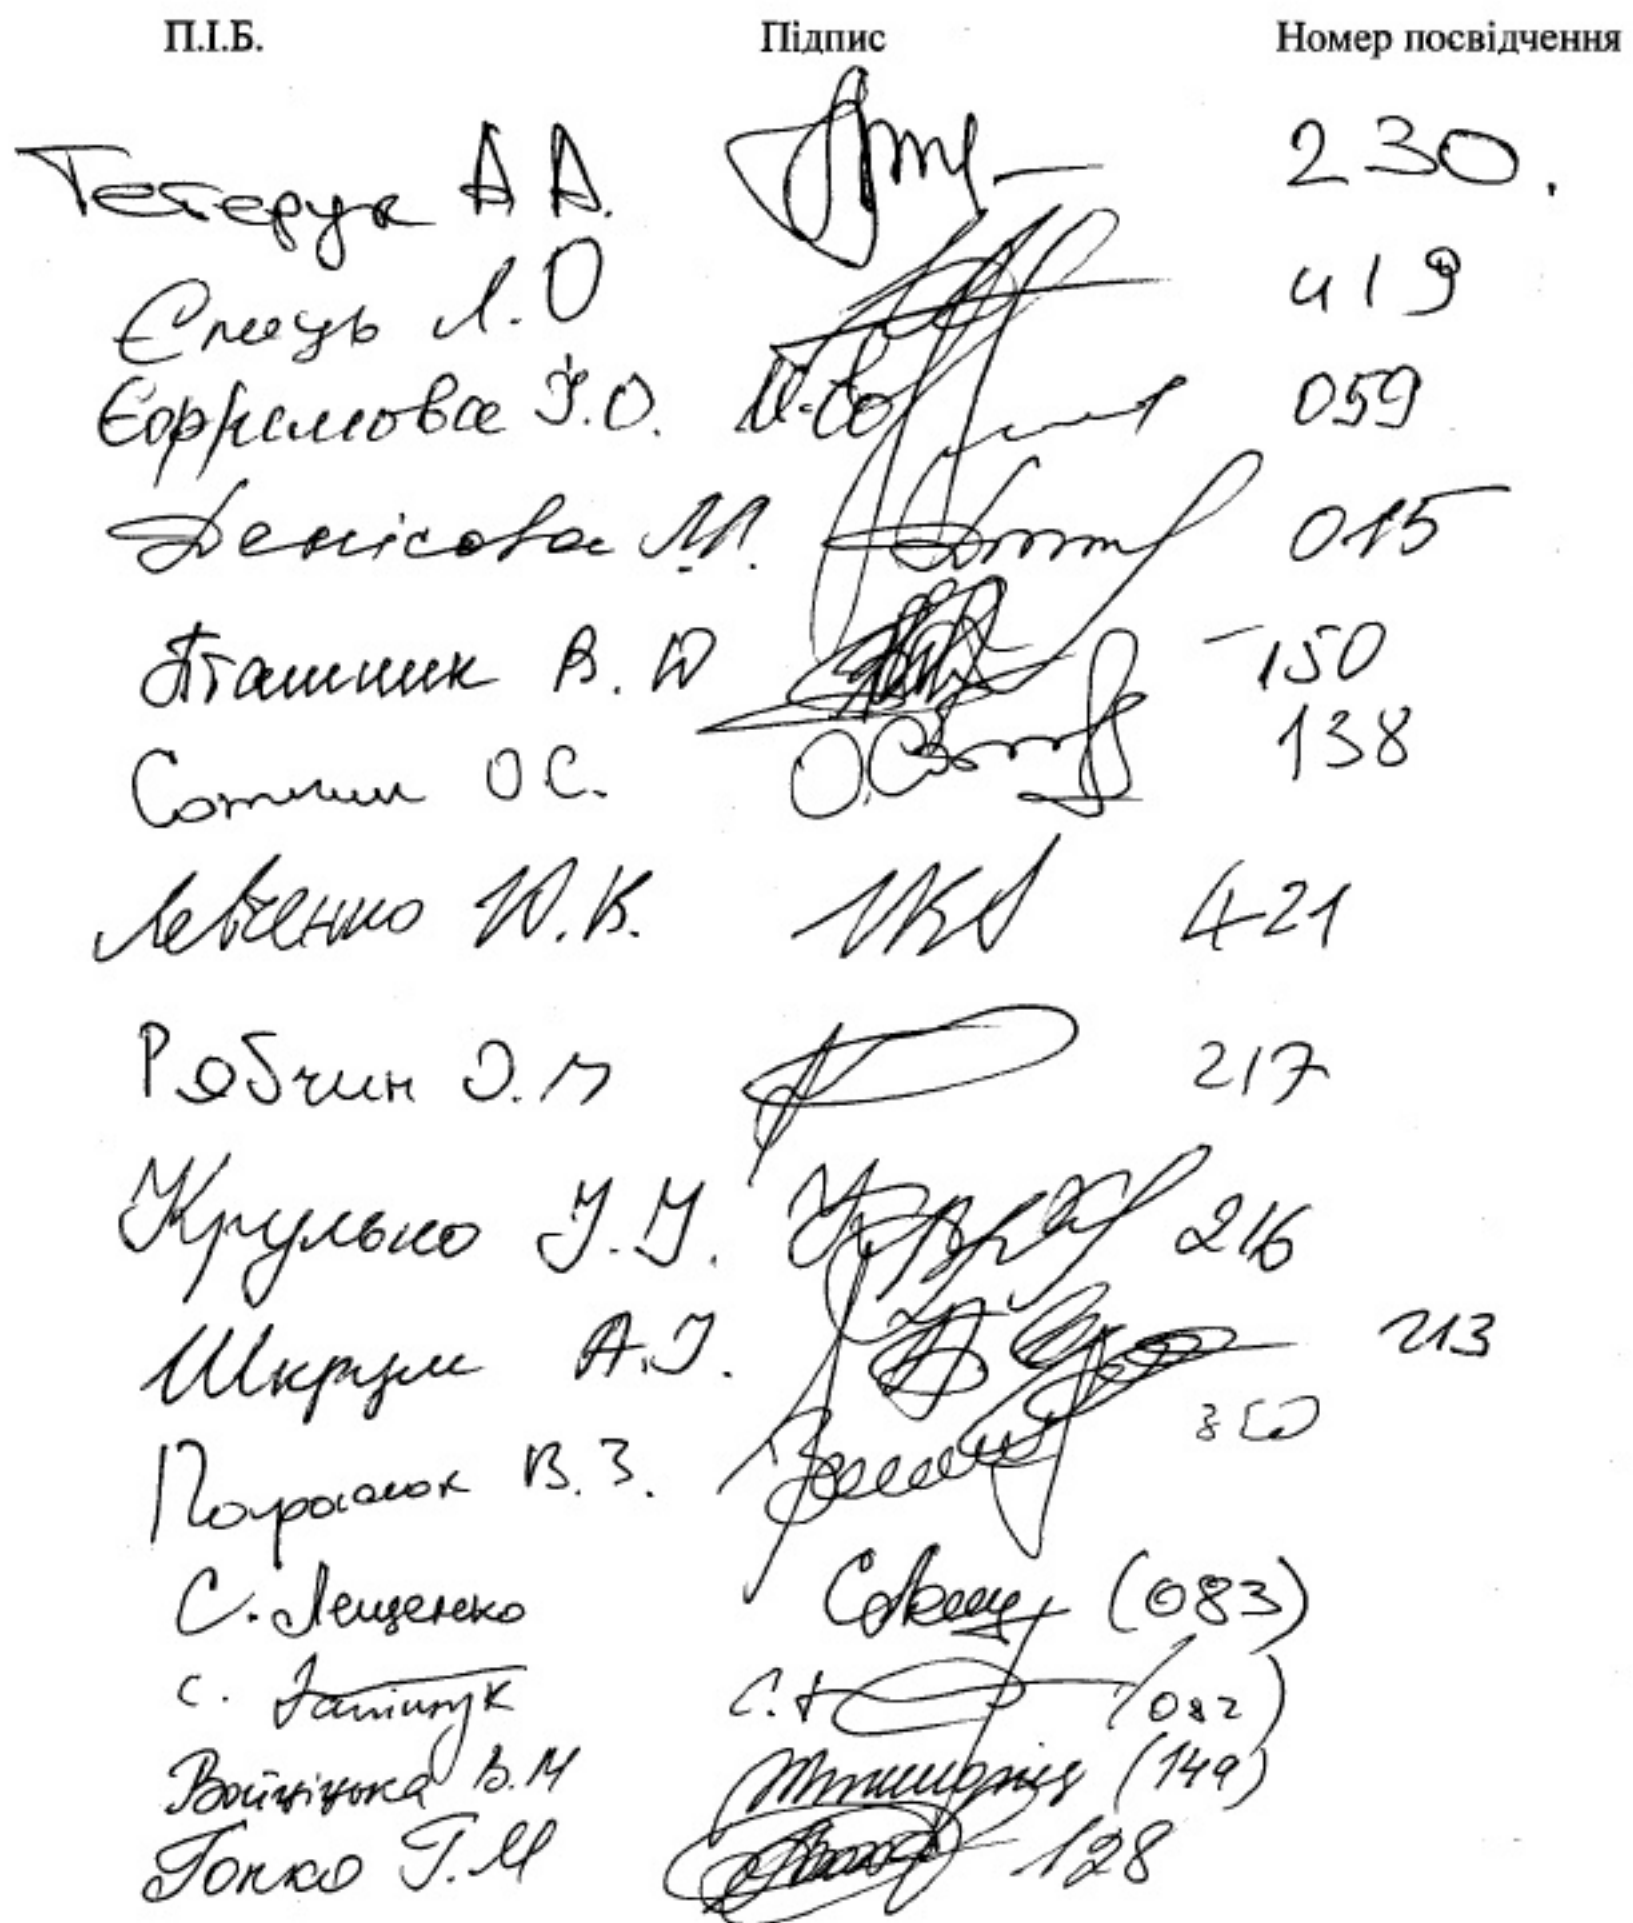 П.І.Б. Підпис Номер посвідчення
Тетерук А А. 230.
Ємець Л.О 419
Єфрімова І.О. 059
Денісова Л. 015
Пташник В. Ю 150
Сотник О С. 138
Левченко Ю.В. 421
Рябчин О.М 217
Крулько І.І. 216
Шкрум А.І. 213
В.З. 350
С. Лещенко (083)
С. Заліщук (082)
Войціцька В.М (149)
Гопко Г.М 128